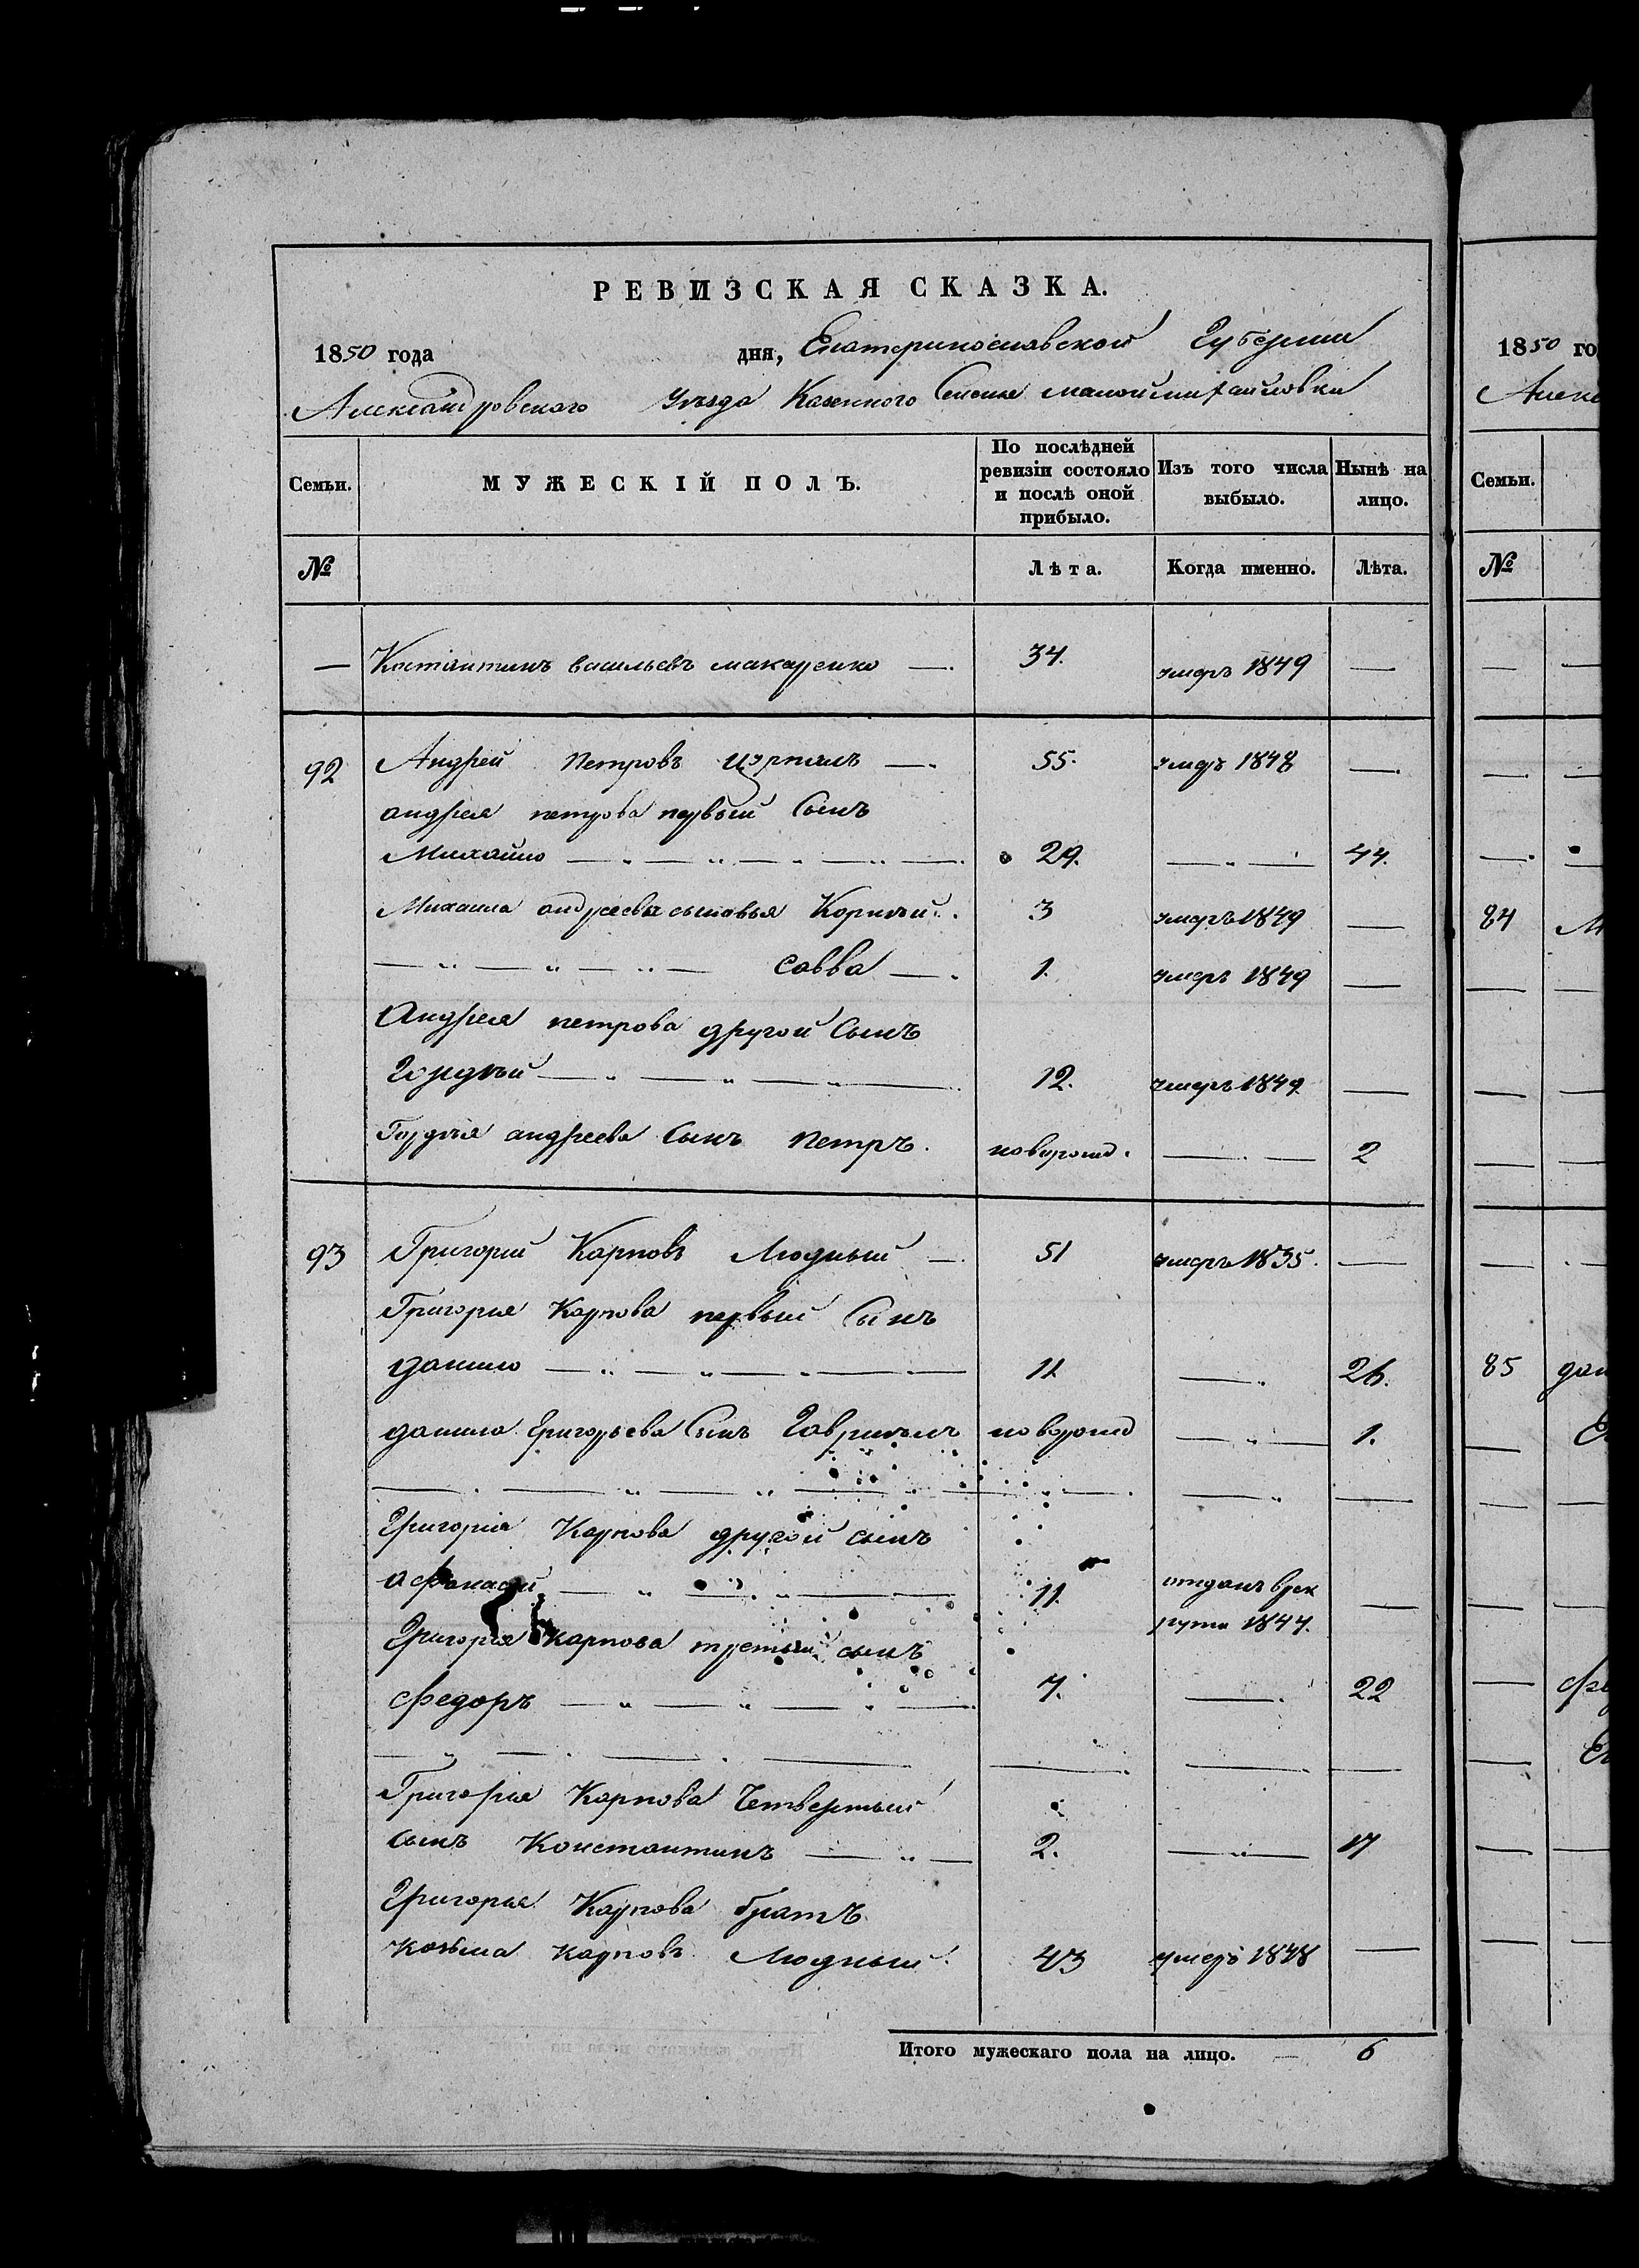 РЕВИЗСКАЯ СКАЗКА.
1850 года дня, Екатеринославской Губернии
Александровского уезда Казенного Селения малой михайловки
Семьи. МУЖЕСКІЙ ПОЛЪ. По послѣдней ревизіи состояло и послѣ оной прибыло. Изъ того числа выбыло. Нынѣ на лицо.
№ Лѣта. Когда именно. Лѣта.
— Костантинъ васильевъ макаренко —. 34. умеръ 1849 —
92 Андрей Петровъ —. 55. умеръ 1848 —.
андрея петрова первый Сынъ
Михайло — 29. — 44.
Михаила андреева сыновья Корнѣй. 3 умеръ 1849 —
— савва —. 1. умеръ 1849 —
Андрея петрова другой Сынъ
Гордѣй — 12. умеръ 1849 —
Гордѣя андреева Сынъ Петръ. новорожд. — 2
93 Григорій Карповъ Людный —. 51 умеръ 1835. —
Григорья Карпова первый Сынъ
данило — 11 — 26.
данила Григорьева Сынъ Гавриилъ новорожд — 1.
Григорія Карпова другой сынъ
афанасий — 11. отданъ врек —
руты 1847.
Григорія Карпова третий сынъ
федоръ — 7. —. 22
Григорія Карпова Четвертый
сынъ Константинъ — 2. — 17
Григорья Карпова братъ
козьма карповъ Людный. 43 умеръ 1848 —
Итого мужескаго пола на лицо. — 6
1850 го
Семьи.
№
84
85 дан